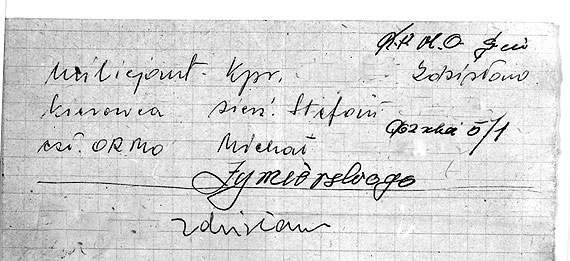 Milicjant. Kpr. Zdzisława
kierowca sierż. Stefan
czł. ORMO Michał 5/1
Żymierskiego
Zdzisław